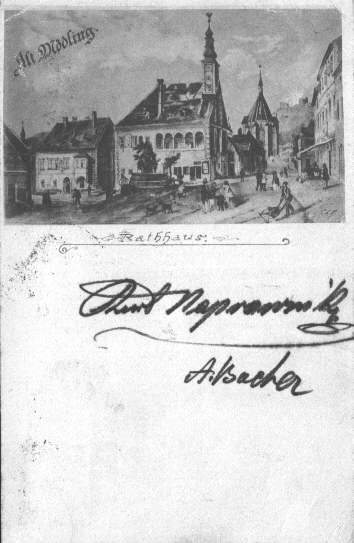 Alt Mödling
Rathhaus.
Kurt Naprawnik
A. Bacher